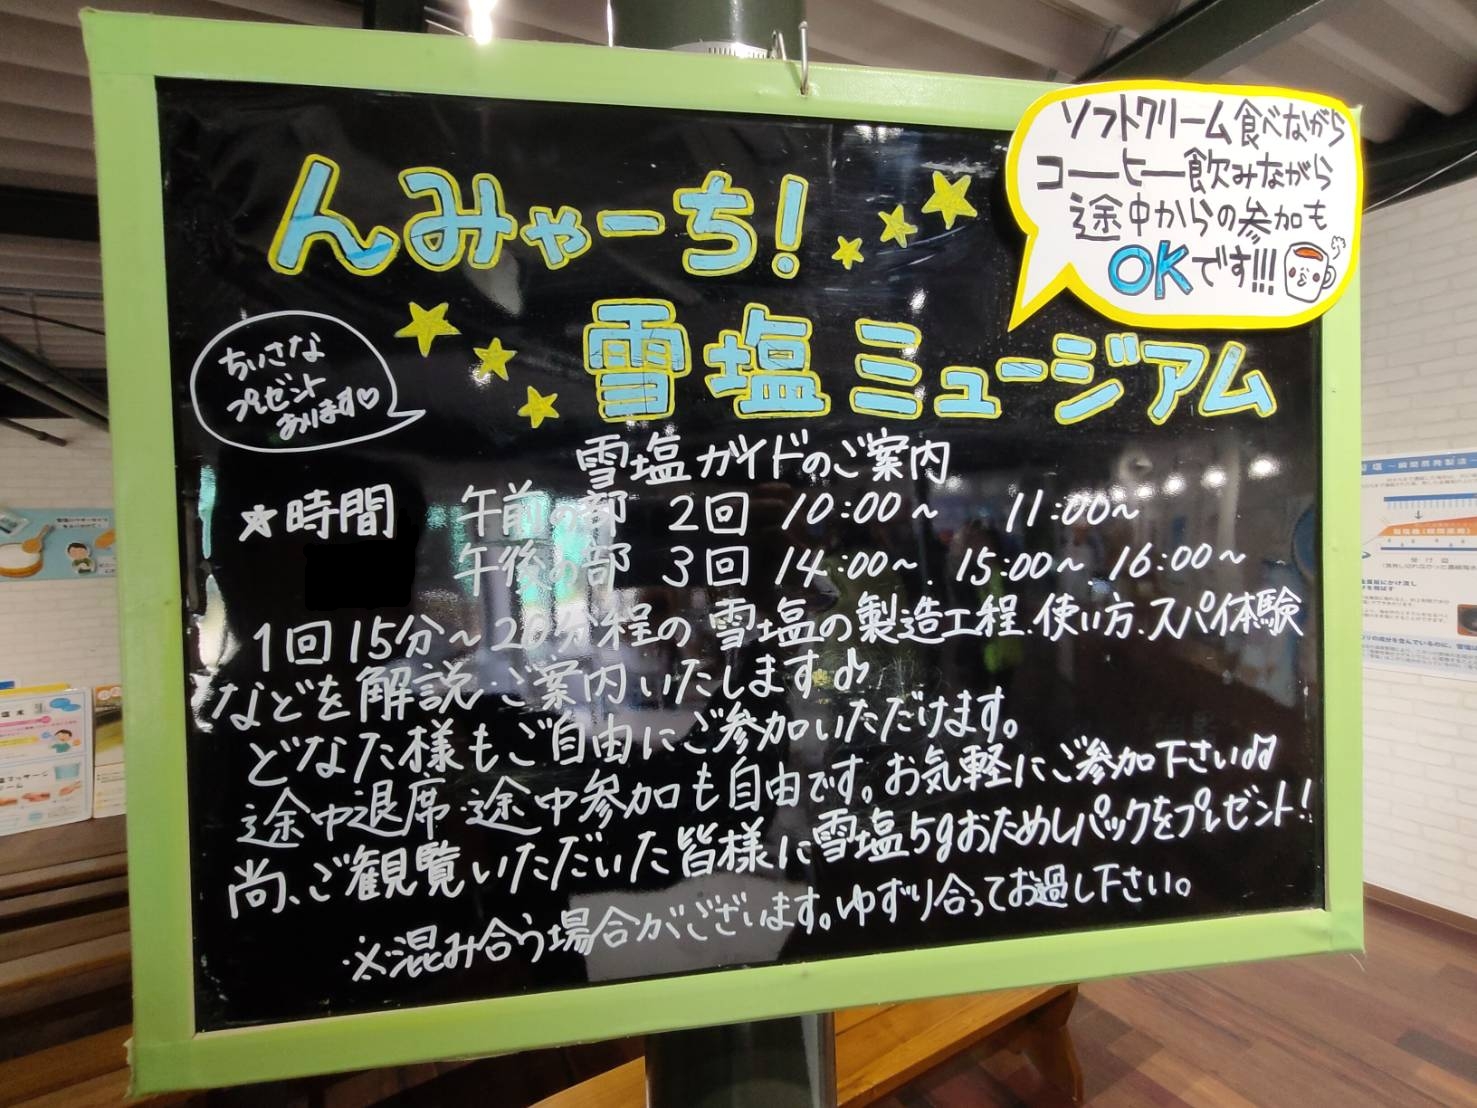 ソフトクリーム食べながら
コーヒー飲みながら
途中からの参加も
OKです!!!
んみゃーち!
雪塩ミュージアム
ちいさな
プレゼント
あります♡
雪塩ガイドのご案内
★時間 午前の部 2回 10:00~ 11:00~
午後の部 3回 14:00~. 15:00~. 16:00~
1回15分~20分程の雪塩の製造工程.使い方.スパイ体験
などを解説・ご案内いたします♪
どなた様もご自由にご参加いただけます。
途中退席・途中参加も自由です。お気軽にご参加下さい♫
尚、ご観覧いただいた皆様に雪塩5gおためしパックをプレゼント!
※混み合う場合がございます。ゆずり合ってお過し下さい。